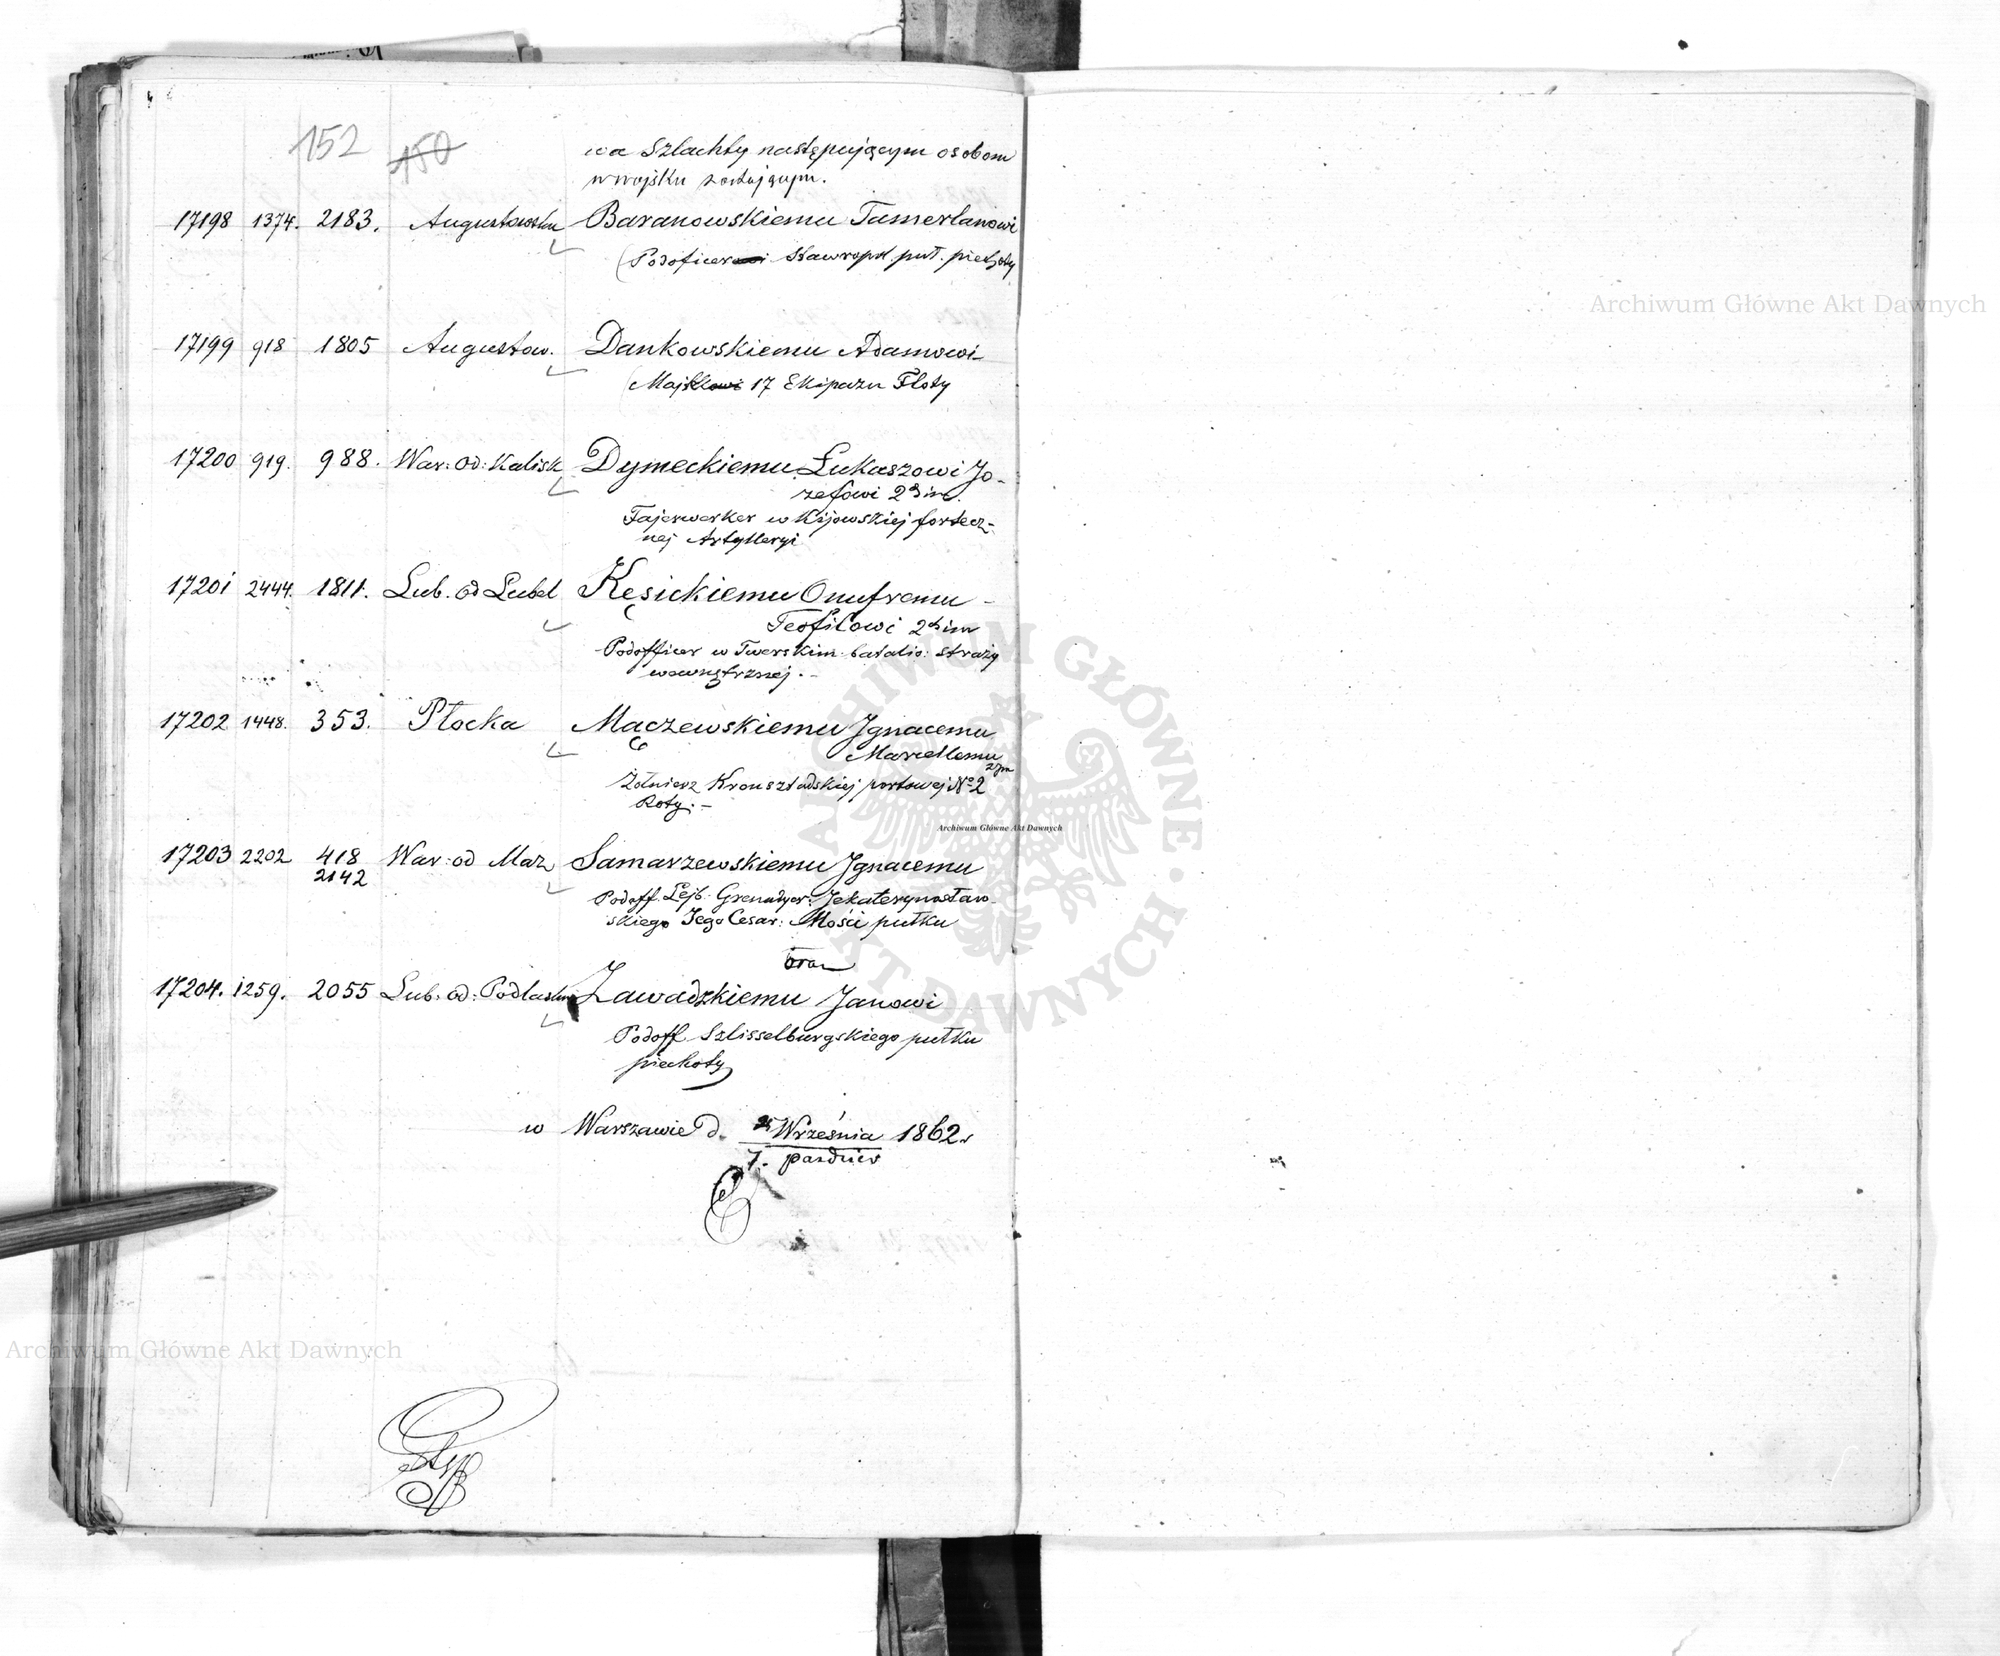 152 150
wa Szlachty następującym osobom
w wojsku zostającym.
17198 1374. 2183. Augustowska Baranowskiemu Tamerlanowi
(Podoficerowi Stawropol. puł. piechoty
17199 918 1805 Augustow. Dankowskiemu Adamowi
(Majtkowi 17 Ekipażu Floty
17200 919. 988. War: od: Kalisk Dymeckiemu Łukaszowi Jo-
zefowi 2ch im.
Fajerwerker w Kijowskiej fortecz-
nej Artylleryi
17201 2444. 1811. Lub. od Lubel Kęsickiemu Onufremu -
Teofilowi 2ch im
Podofficer w Twerskim batalio: straży
wewnętrznej. -
17202 1448. 353. Płocka Mączewskiemu Ignacemu
Marcellemu
2 im
Żołnierz Kronsztadskiej portowej No 2
Roty. -
17203 2202 418 War: od Maz Samarzewskiemu Ignacemu
2142
Podoff. Lejb: Grenadyer: Jekaterynosław-
skiego Jego Cesar: Mości pułku
oraz
17204. 1259. 2055 Lub: od: Podlaska Zawadzkiemu Janowi
Podoff Szlisselburgskiego pułku
piechoty
w Warszawie d. 25 Września 1862 r
7. paździer
Archiwum Główne Akt Dawnych
Archiwum Główne Akt Dawnych
Archiwum Główne Akt Dawnych
ARCHIWUM GŁÓWNE AKT DAWNYCH